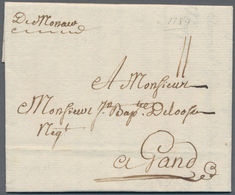 De Monaco
1789
A Monsieur
Monsieur J.n Bap.tte Deloose
Neg.t
a Gand